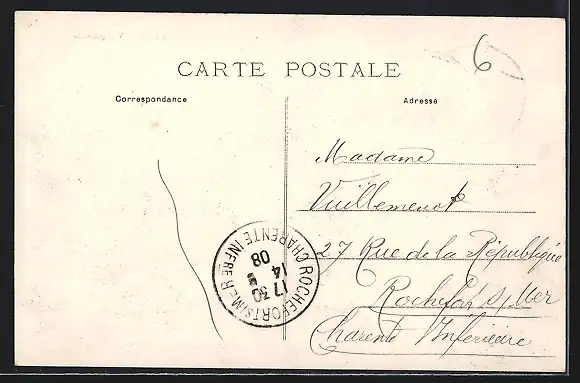 6
CARTE POSTALE
Correspondance
Adresse
Madame
Vuillemenot
27 Rue de la République
Rochefort s/ Mer
Charente Inférieure
ROCHEFORT S/MER
CHARENTE INFRE
17 30
14
08